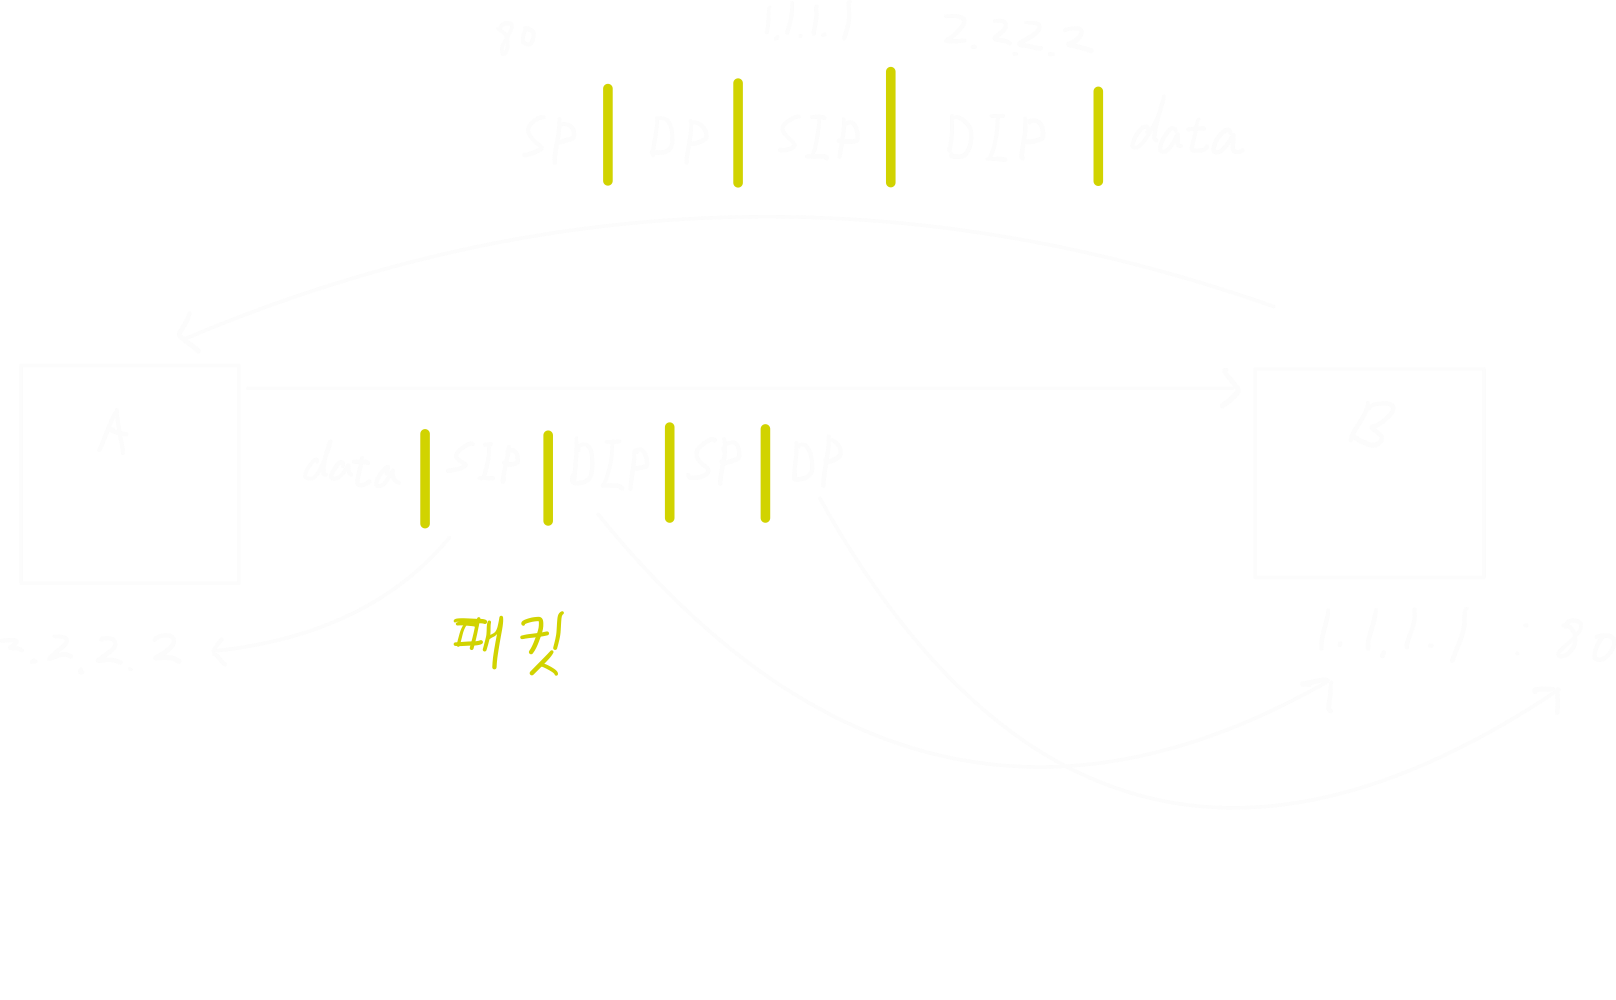 80 1.1.1.1 2.2.2.2
SP | DP | SIP | DIP | data
A
B
data | SIP | DIP | SP | DP
2.2.2.2
패킷
1.1.1.1 : 80